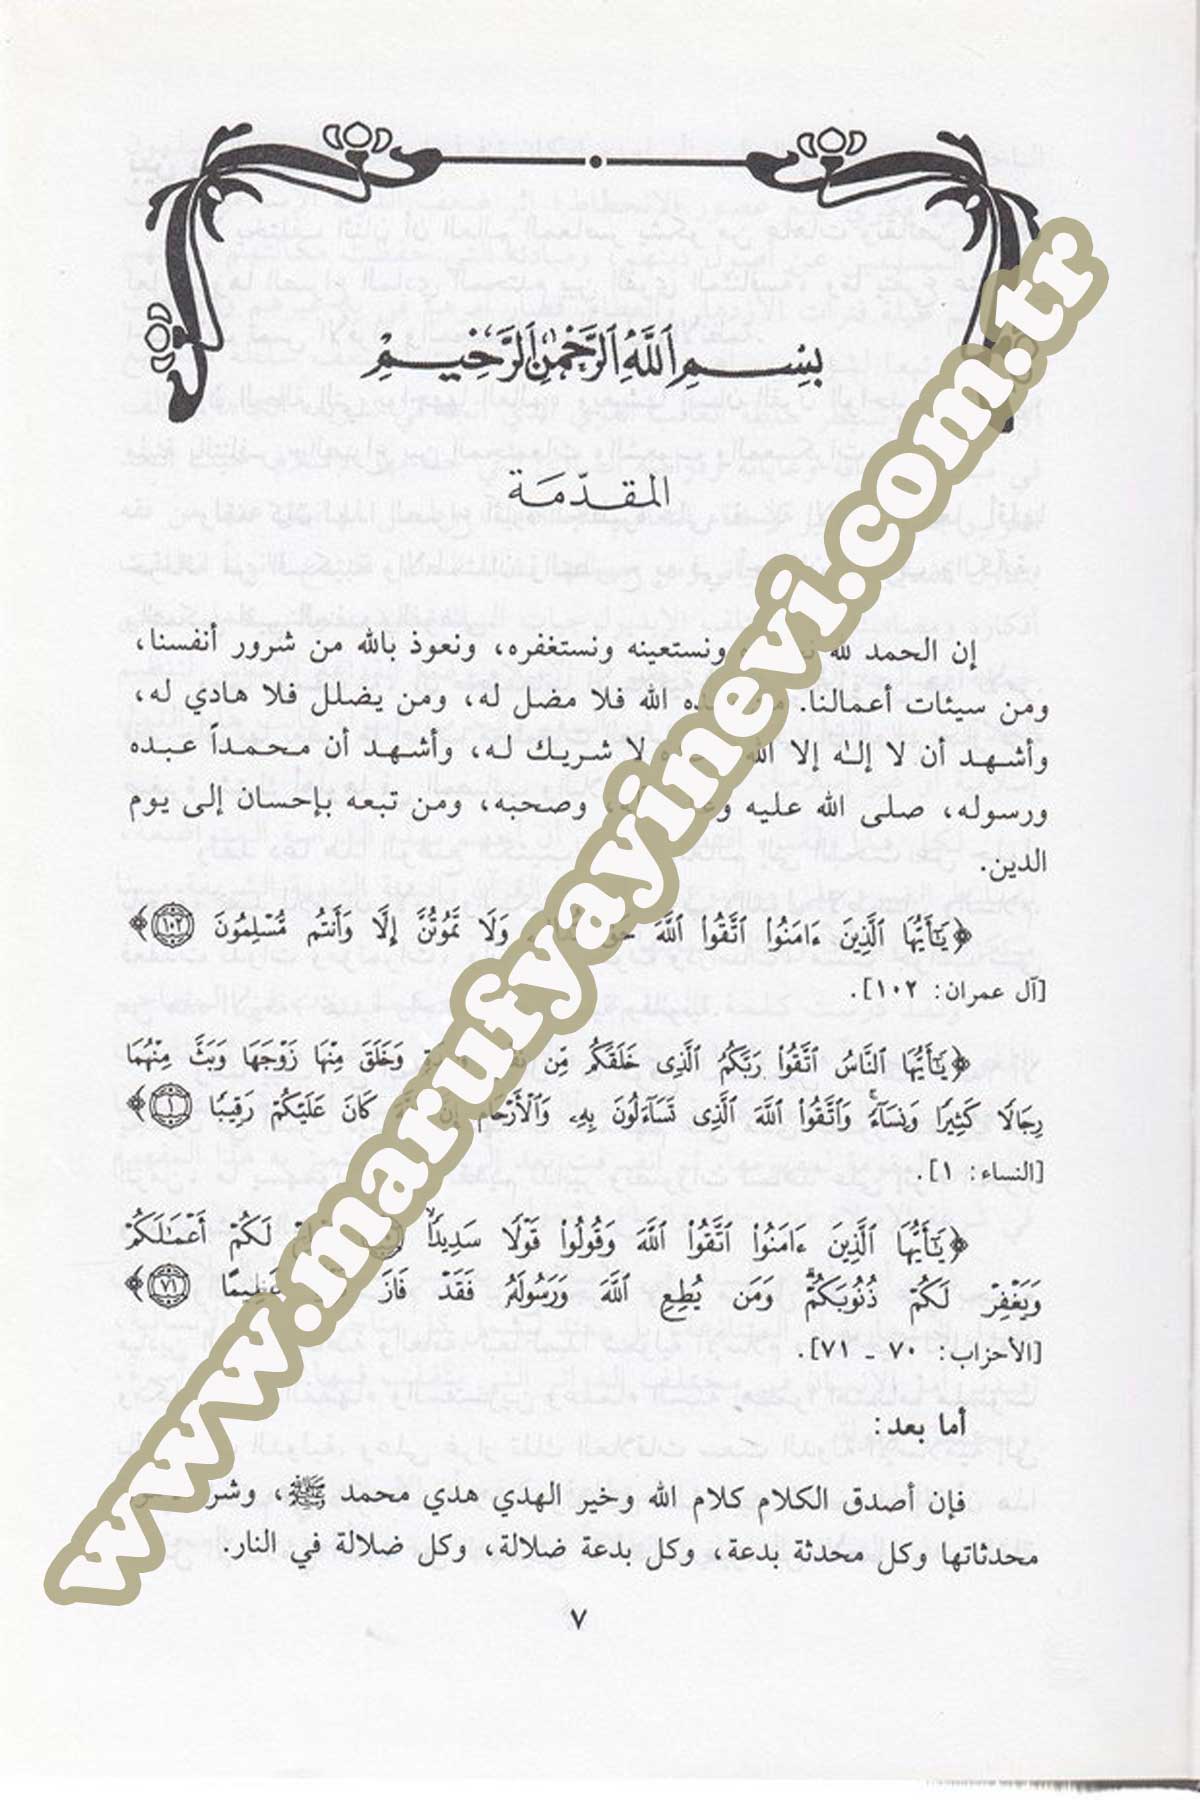 بِسْمِ ٱللَّهِ ٱلرَّحْمَٰنِ ٱلرَّحِيمِ
المقدّمَة
إن الحمد لله ونستعينه ونستغفره، ونعوذ بالله من شرور أنفسنا،
ومن سيئات أعمالنا. الله فلا مضل له، ومن يضلل فلا هادي له،
وأشهد أن لا إلٰه إلا الله لا شريك له، وأشهد أن محمداً عبده
ورسوله، صلى الله عليه وصحبه، ومن تبعه بإحسان إلى يوم
الدين.
﴿يَٰٓأَيُّهَا ٱلَّذِينَ ءَامَنُوا۟ ٱتَّقُوا۟ ٱللَّهَ حَقَّ وَلَا تَمُوتُنَّ إِلَّا وَأَنتُم مُّسْلِمُونَ ١٠٢﴾
[آل عمران: ١٠٢].
﴿يَٰٓأَيُّهَا ٱلنَّاسُ ٱتَّقُوا۟ رَبَّكُمُ ٱلَّذِى خَلَقَكُم مِّن وَخَلَقَ مِنْهَا زَوْجَهَا وَبَثَّ مِنْهُمَا
رِجَالًا كَثِيرًا وَنِسَآءً ۚ وَٱتَّقُوا۟ ٱللَّهَ ٱلَّذِى تَسَآءَلُونَ بِهِۦ وَٱلْأَرْحَامَ إِنَّ كَانَ عَلَيْكُمْ رَقِيبًا ١﴾
[النساء: ١].
﴿يَٰٓأَيُّهَا ٱلَّذِينَ ءَامَنُوا۟ ٱتَّقُوا۟ ٱللَّهَ وَقُولُوا۟ قَوْلًا سَدِيدًا لَكُمْ أَعْمَٰلَكُمْ
وَيَغْفِرْ لَكُمْ ذُنُوبَكُمْ ۗ وَمَن يُطِعِ ٱللَّهَ وَرَسُولَهُۥ فَقَدْ فَازَ عَظِيمًا ٧١﴾
[الأحزاب: ٧٠ ـ ٧١].
أما بعد:
فإن أصدق الكلام كلام الله وخير الهدي هدي محمد ﷺ، وشر
محدثاتها وكل محدثة بدعة، وكل بدعة ضلالة، وكل ضلالة في النار.
٧
www.marufyayinevi.com.tr